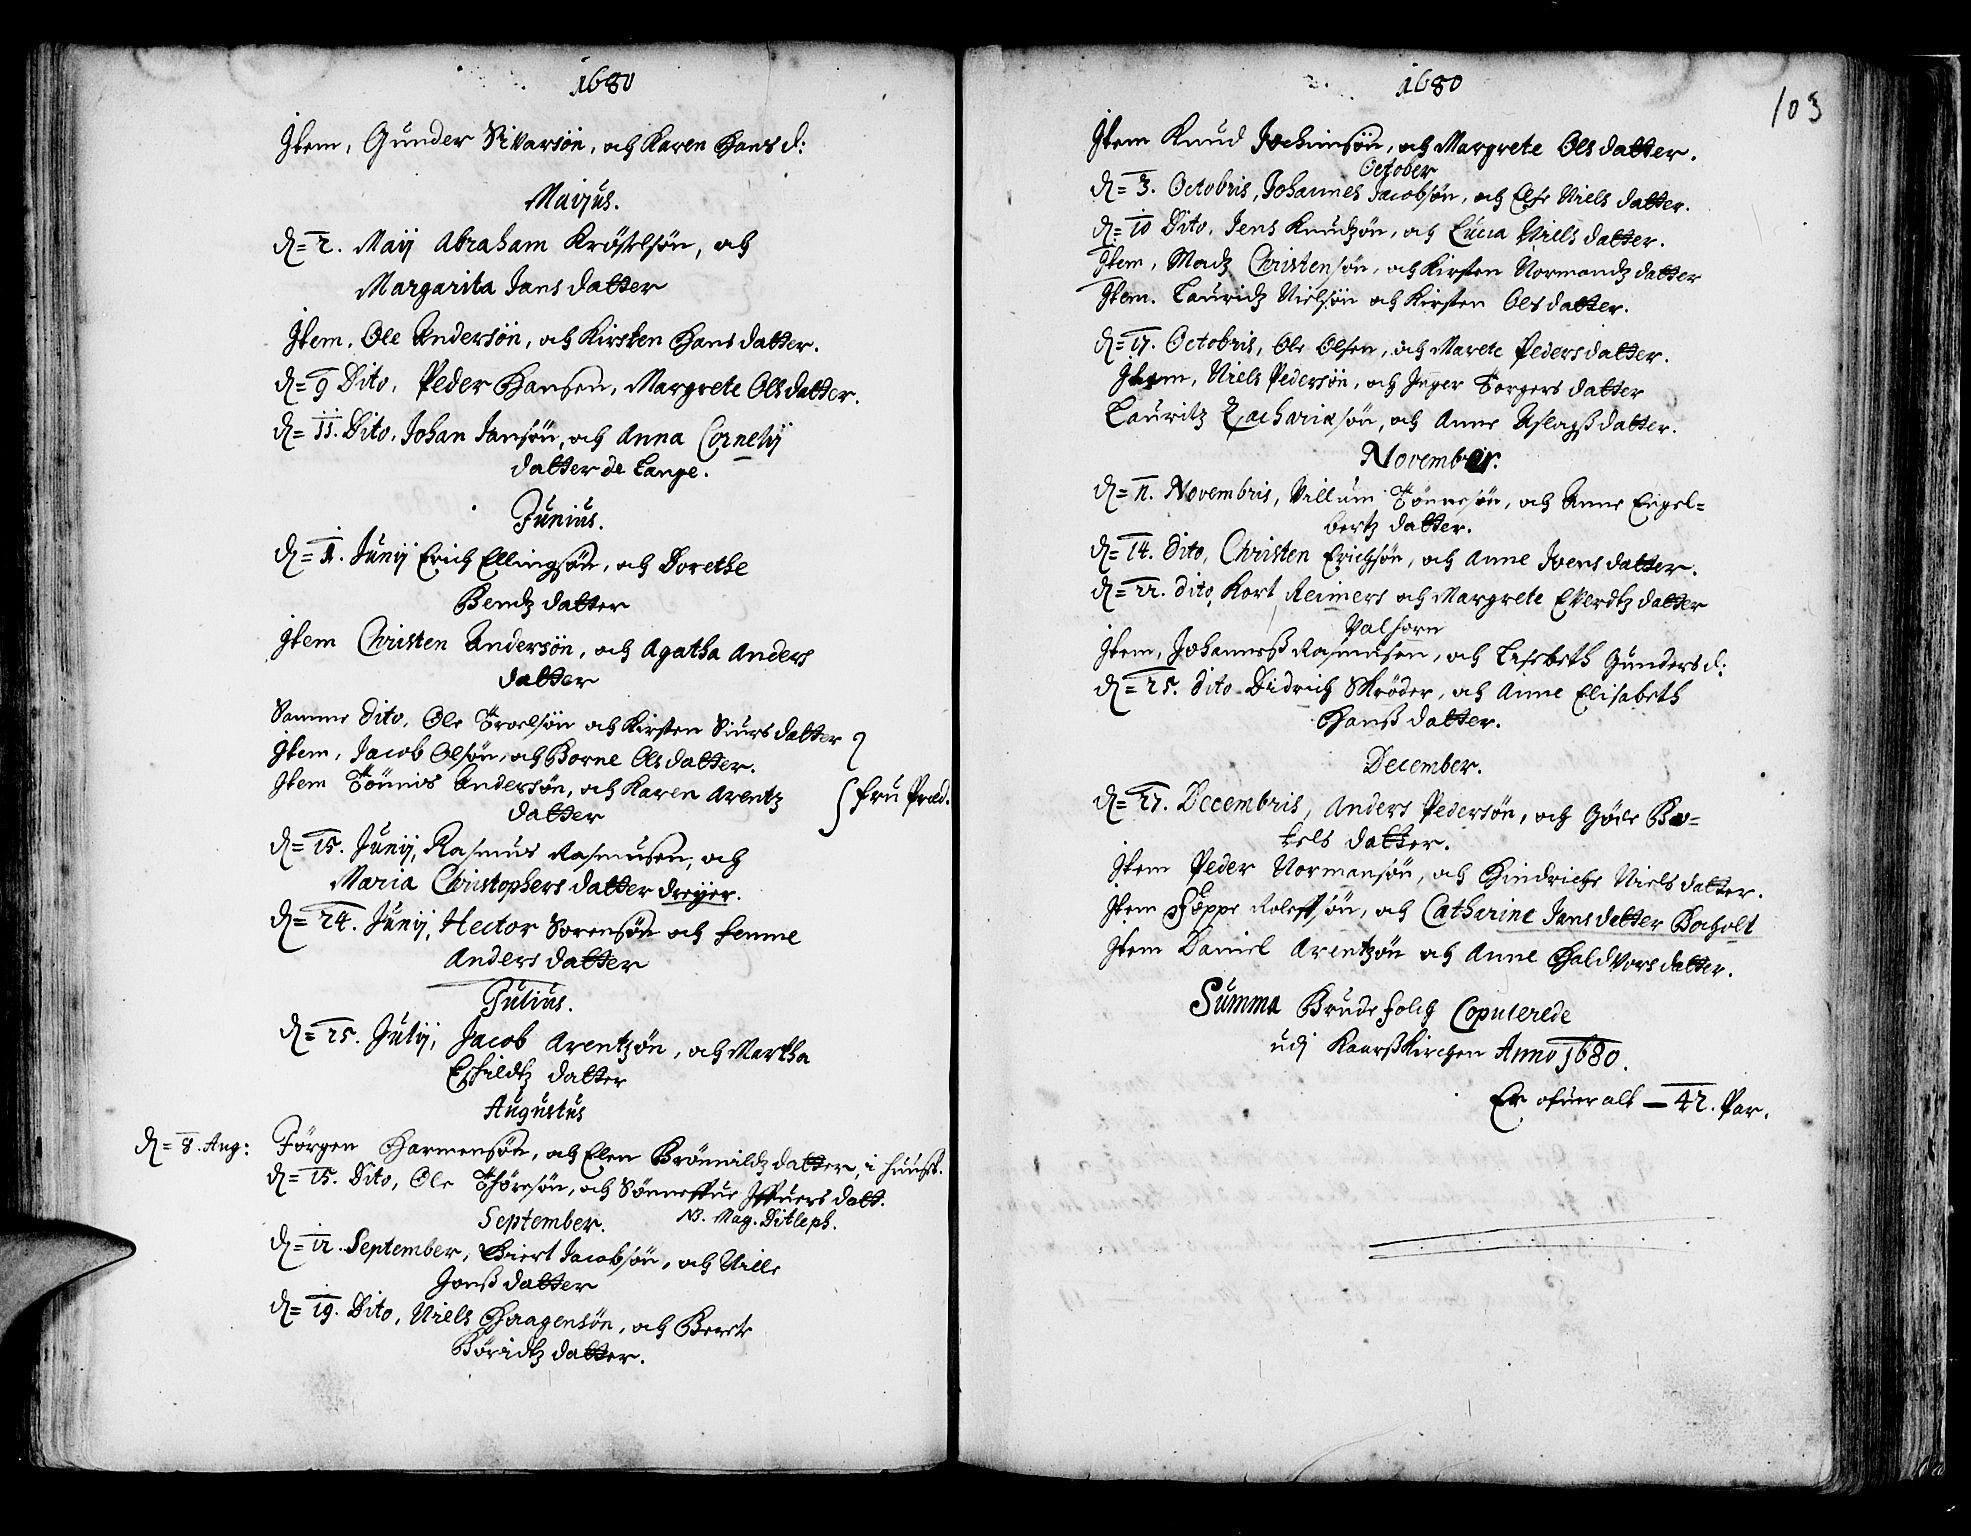 1680
Item, Gunder Sivarsøn, och Karen Hans d:
Maijus.
d= 2. Maij Abraham Krøstelsøn, och
Margarita Jans datter
Item, Ole Andersøn, och Kirsten Hans datter.
d= 9 Dito, Peder Hansen, Margrete Ols datter.
d= 11. Dito, Johan Jansøn, och Anna Cornelij
datter de Lange.
Junius.
d= 1. Junij Erich Ellingsøn, och Dorethe
Bendz datter
Item Christen Andersøn, och Agatha Anders
datter
Samme Dito, Ole Troelsøn och Kirsten Siurs datter
Item, Jacob Olsøn, och Borne Ols datter.
Item Tönnis Andersøn, och Karen Arentz
datter
fru Præd.
d= 15. Junij, Rasmus Rasmusen, och
Maria Christophers datter Dreyer.
d= 24. Junij, Hector Sorensøn och Femme
Anders datter
Julius.
d= 25. Julij, Jacob Arentzøn, och Martha
Eskildtz datter
Augustus
d= 8. Aug: Jørgen Harmensøn, och Elen Brönvildz datter, i huuset.
d= 15. Dito, Ole Thøresøn, och Sønneffue Iffuers datt.
September. NB. Mag. Ditleph.
d= 12. September, Giert Jacobsøn, och Nille
Jonß datter
d= 19. Dito, Niels Haagensøn, och Berete
Böridtz datter.
1680
103
Item Knud Jochimsøn, och Margrete Ols datter.
October
d= 3. Octobris, Johannes Jacobsøn, och Else Niels datter.
d= 10 Dito, Jens Knudzøn, och Lucia Niels datter.
Item, Madz Christensøn, och Kirsten Normandz datter
Item. Lauridz Nielsøn och Kirsten Ols datter.
d= 17. Octobris, Ole Olsen, och Marete Peders datter.
Item, Niels Pedersøn, och Inger Torgers datter
Lauritz Zachariæsøn, och Anne Aslagß datter.
November.
d= 11. Novembris, Villum Tönnesøn, och Anne Engel=
bertz datter.
d= 14. Dito, Christen Erichsøn, och Anne Ivers datter.
d= 22. Dito, Kort Reimers och Margrete Everdtz datter
Valhorn
Item, Johannesß Rasmusen, och Lisebeth Gunders d:
d= 25. Dito Didrich Skrøder, och Anne Elisabeth
Hanß datter.
December.
d= 27. Decembris, Anders Pedersøn, och Gøde Bo=
kels datter.
Item Peder Normansøn, och Hindriche Niels datter.
Item Foppe Roleffsøn, och Catharine Jans datter Bocholt
Item Daniel Arentzøn och Anne Haldvors datter.
Summa Brude folch Copulerede
udj Kaarß Kirchen Anno 1680.
Er ofuer alt — 42. Par.